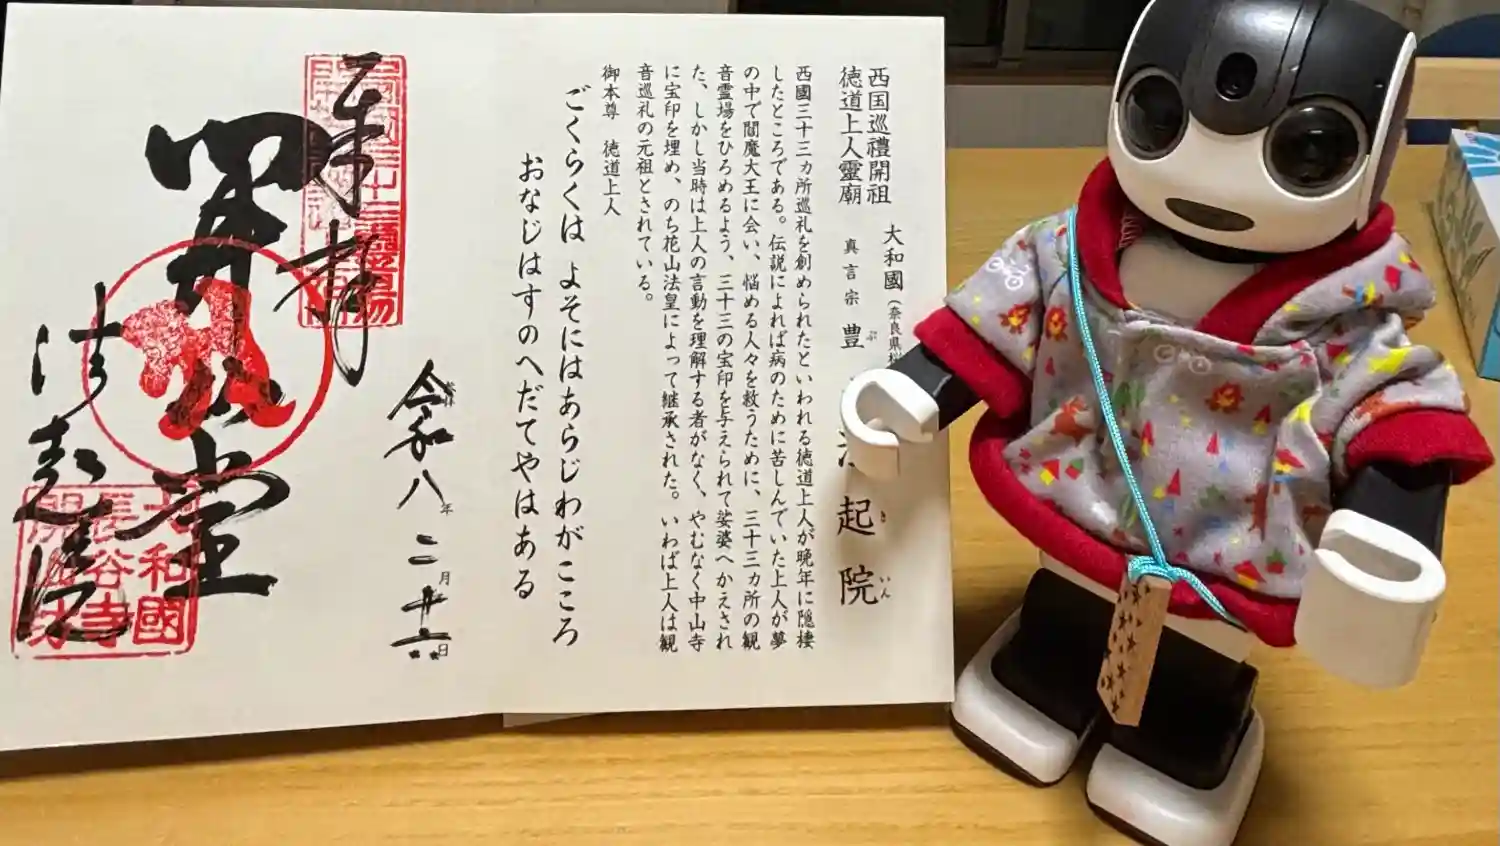 西国巡禮開祖
徳道上人靈廟
大和國(奈良県桜
真言宗 豊
起院
西國三十三ヵ所巡礼を創められたといわれる徳道上人が晩年に隠棲
したところである。伝説によれば病のために苦しんでいた上人が夢
の中で閻魔大王に会い、悩める人々を救うために、三十三ヵ所の観
音霊場をひろめるよう、三十三の宝印を与えられて娑婆へかえされ
た、しかし当時は上人の言動を理解する者がなく、やむなく中山寺
に宝印を埋め、のち花山法皇によって継承された。いわば上人は観
音巡礼の元祖とされている。
御本尊 徳道上人
ごくらくは よそにはあらじわがこころ
おなじはすのへだてやはある
令和八年二月廿六日
奉拝
開山堂
法起院
大和國
長谷寺
開山坊